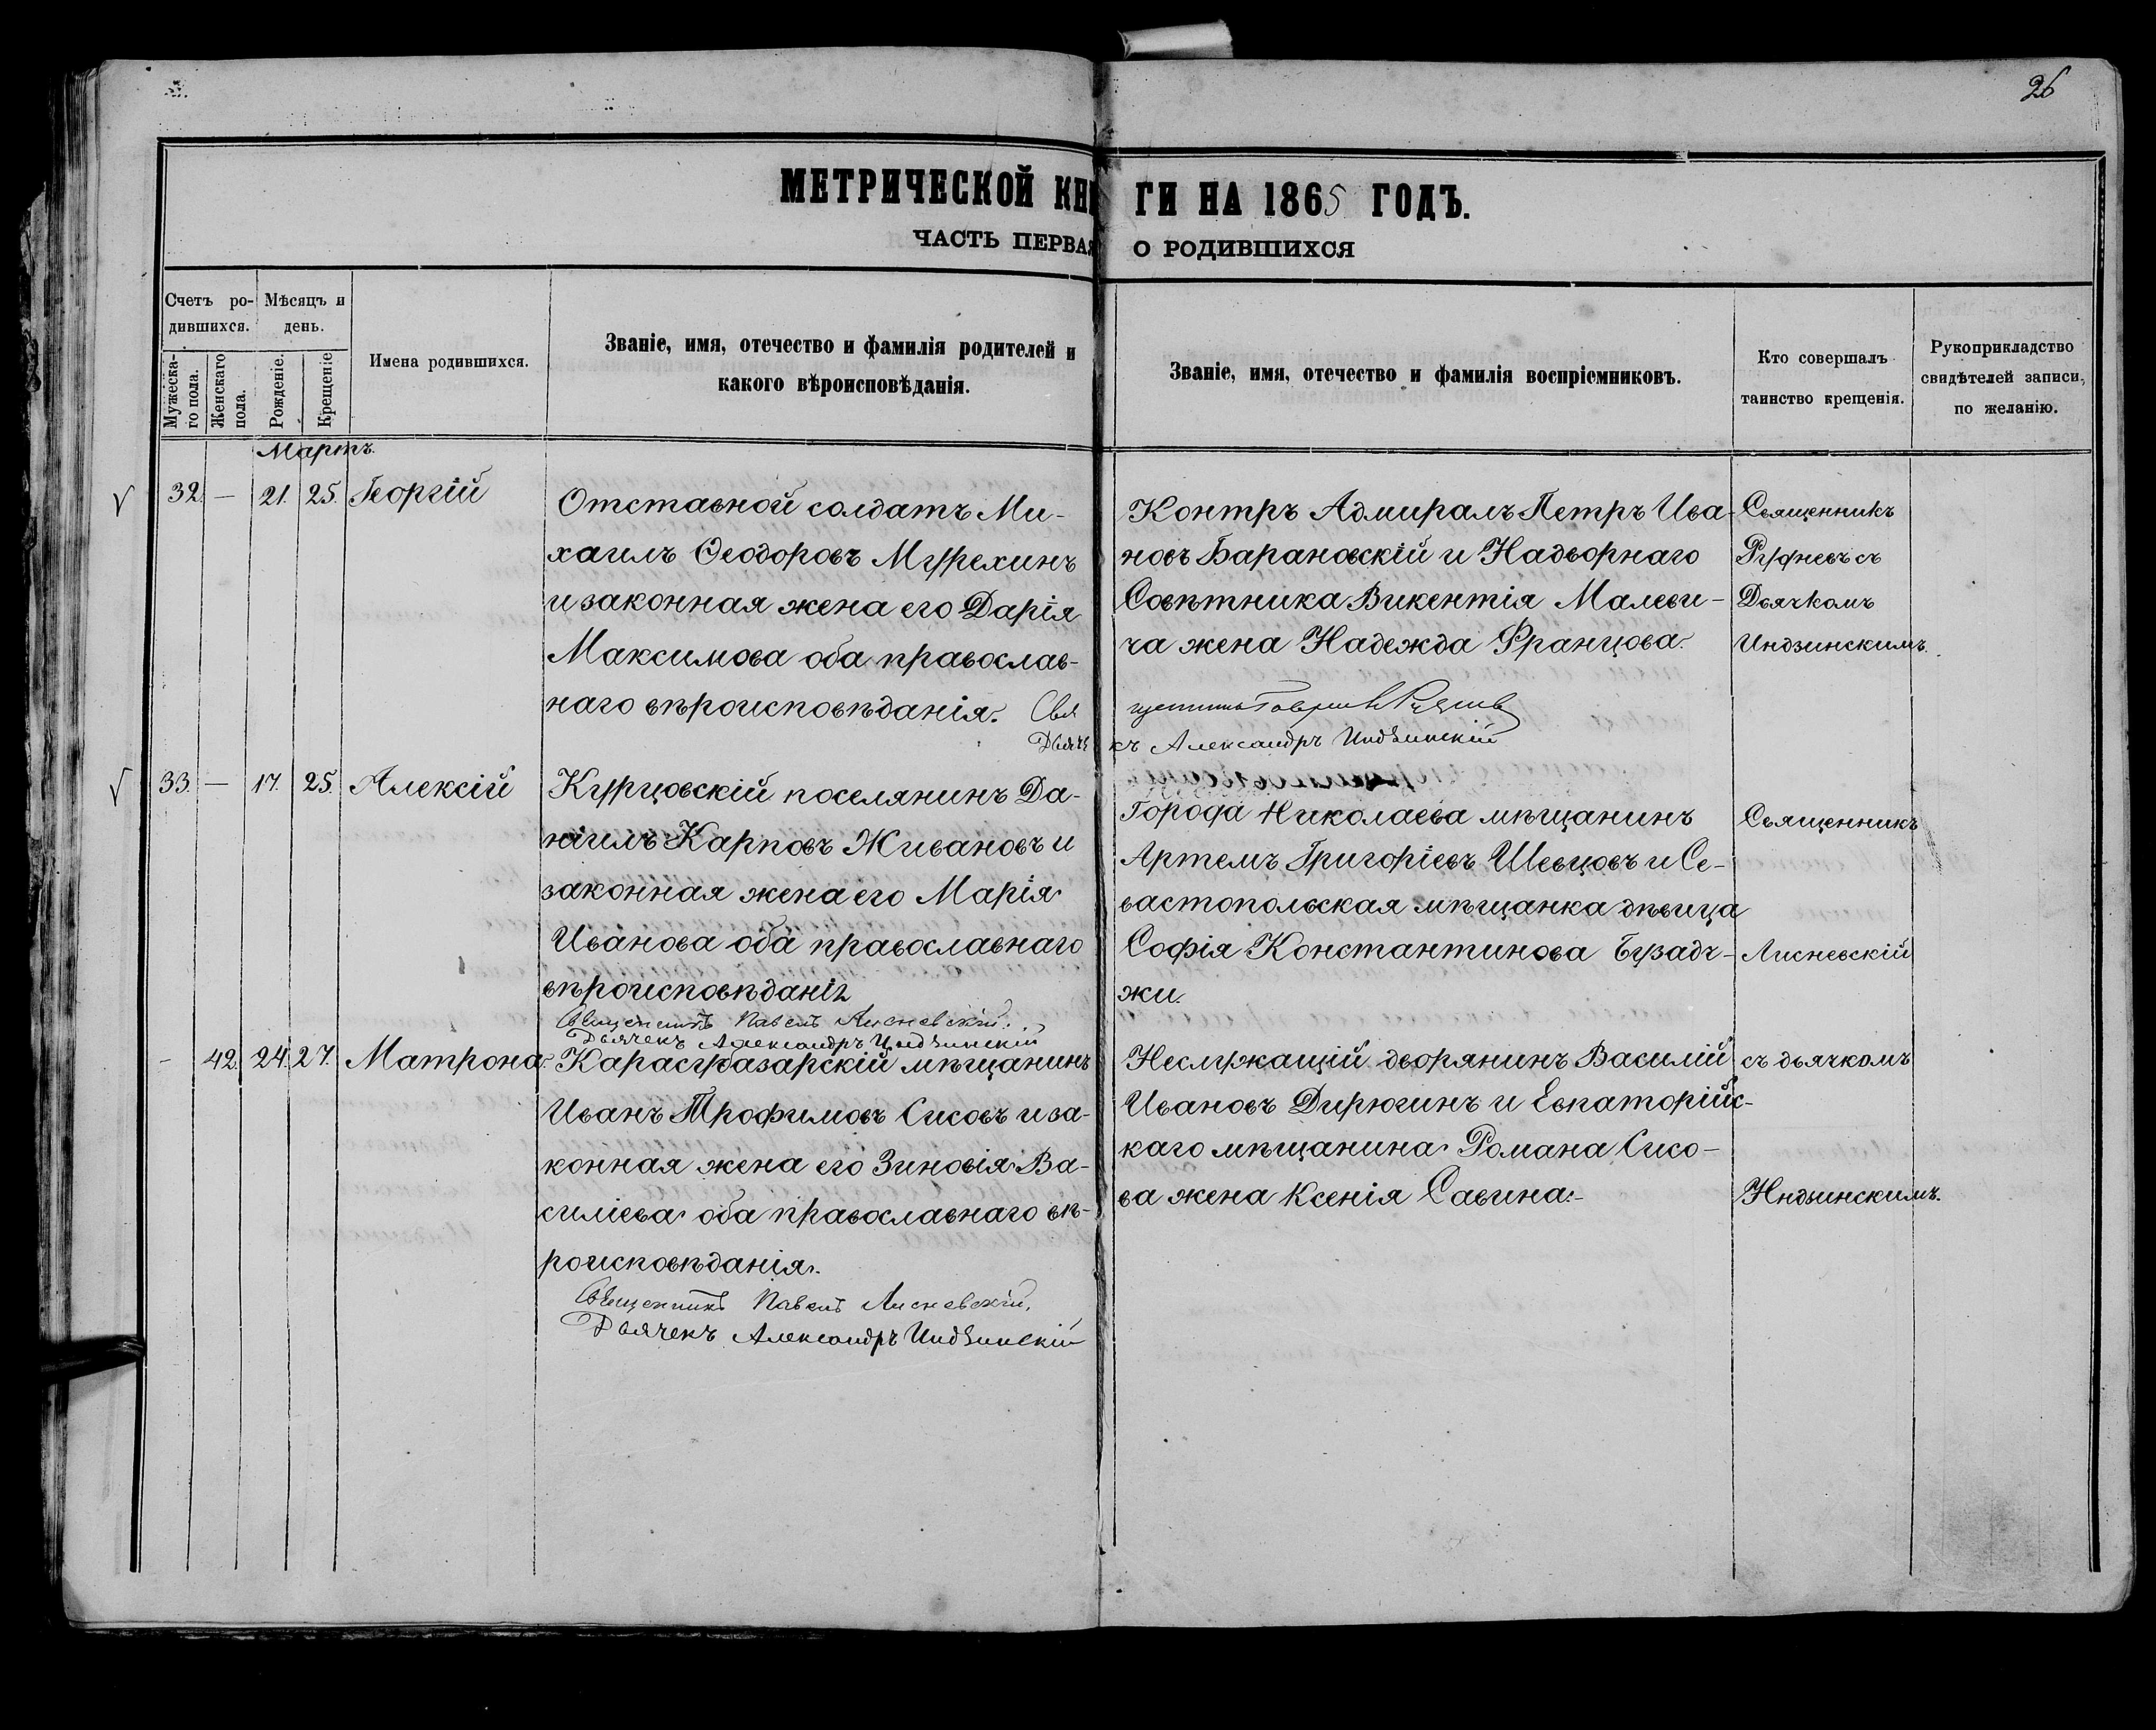 26
МЕТРИЧЕСКОЙ КНИГИ НА 1865 ГОДЪ.
ЧАСТЬ ПЕРВАЯ О РОДИВШИХСЯ
Счетъ ро-
дившихся.
Мужеска-
го пола.
Женскаго
пола.
Мѣсяцъ и
день.
Рожденіе.
Крещеніе
Имена родившихся.
Званіе, имя, отечество и фамилія родителей и
какого вѣроисповѣданія.
Званіе, имя, отечество и фамилія воспріемниковъ.
Кто совершалъ
таинство крещенія.
Рукоприкладство
свидѣтелей записи,
по желанію.
Мартъ.
32. — 21. 25. Георгій
Отставной солдатъ Ми-
хаилъ Ѳеодоровъ Мурехинъ
и законная жена его Дарія
Максимова оба православ-
наго вѣроисповѣданія.
Контръ Адмиралъ Петръ Ива-
новъ Барановскій и Надворнаго
Совѣтника Викентія Малеви-
ча жена Надежда Францова.
Священникъ
Руфневъ съ
Дьячкомъ
Индзинскимъ.
Дьячекъ Александръ Индзинскій
33. — 17. 25. Алексій
Курцовскій поселянинъ Да-
ніилъ Карповъ Живановъ и
законная жена его Марія
Иванова оба православнаго
вѣроисповѣданія
Города Николаева мѣщанинъ
Артемъ Григоріевъ Шевцовъ и Се-
вастопольская мѣщанка дѣвица
Софія Константинова Бузад-
жи.
Священникъ
Лисневскій
Священникъ Павелъ Лисневскій.
Дьячекъ Александръ Индзинскій
- 42. 24. 27. Матрона.
Карасубазарскій мѣщанинъ
Иванъ Трофимовъ Сисовъ и за-
конная жена его Зиновія Ва-
силіева оба православнаго вѣ-
роисповѣданія.
Неслужащій дворянинъ Василій
Ивановъ Дирюгинъ и Евпаторійс-
каго мѣщанина Романа Сисо-
ва жена Ксенія Савина.-
съ дьячкомъ
Индзинскимъ.
Священникъ Павелъ Лисневскій.
Дьячекъ Александръ Индзинскій